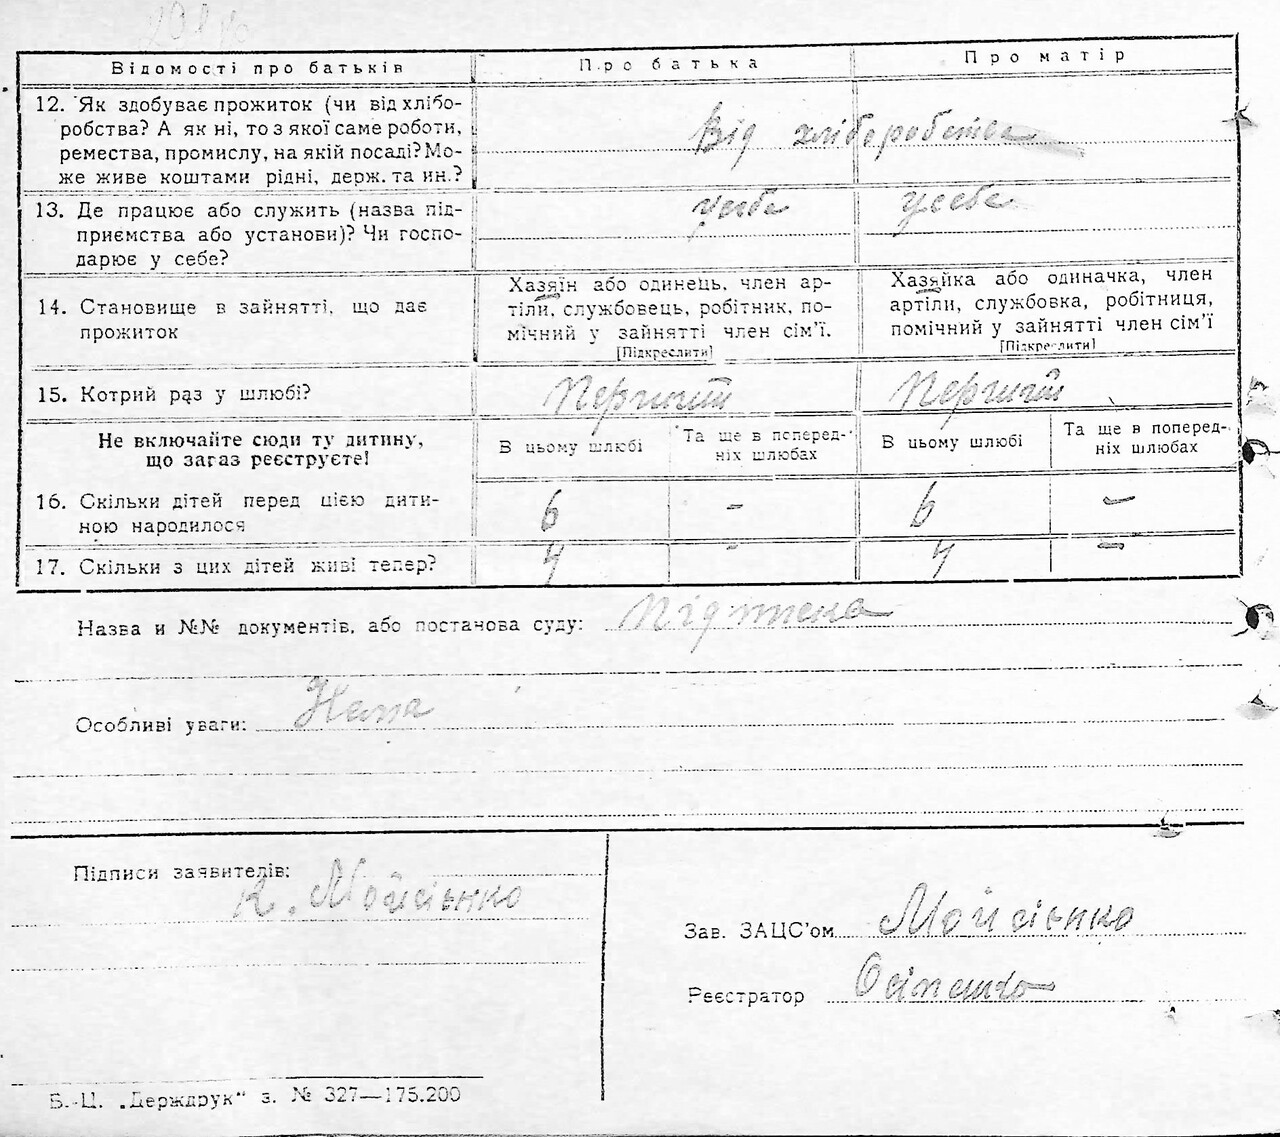 Відомості про батьків
Про батька
Про матір
12. Як здобуває прожиток (чи від хлібо-
робства? А як ні, то з якої саме роботи,
ремества, промислу, на якій посаді? Мо-
же живе коштами рідні, держ. та ин.?
Від хліборобства
13. Де працює або служить (назва під-
приємства або установи)? Чи госпо-
дарює у себе?
усебе
усебе
14. Становище в зайнятті, що дає
прожиток
Хазяїн або одинець, член ар-
тіли, службовець, робітник, по-
мічний у зайнятті член сім'ї.
[Підкреслити]
Хазяйка або одиначка, член
артіли, службовка, робітниця,
помічний у зайнятті член сім'ї
[Підкреслити]
15. Котрий раз у шлюбі?
Перший
Перший
Не включайте сюди ту дитину,
що зараз реєструєте!
В цьому шлюбі
Та ще в поперед-
ніх шлюбах
В цьому шлюбі
Та ще в поперед-
ніх шлюбах
16. Скільки дітей перед цією дити-
ною народилося
6
-
6
-
17. Скільки з цих дітей живі тепер?
4
-
4
-
Назва и №№ документів, або постанова суду:
Особливі уваги:
Підписи заявителів:
К. Мойсієнко
Зав. ЗАЦС'ом Мойсієнко
Реєстратор
Б.-Ц. „Держдрук" з. № 327—175.200